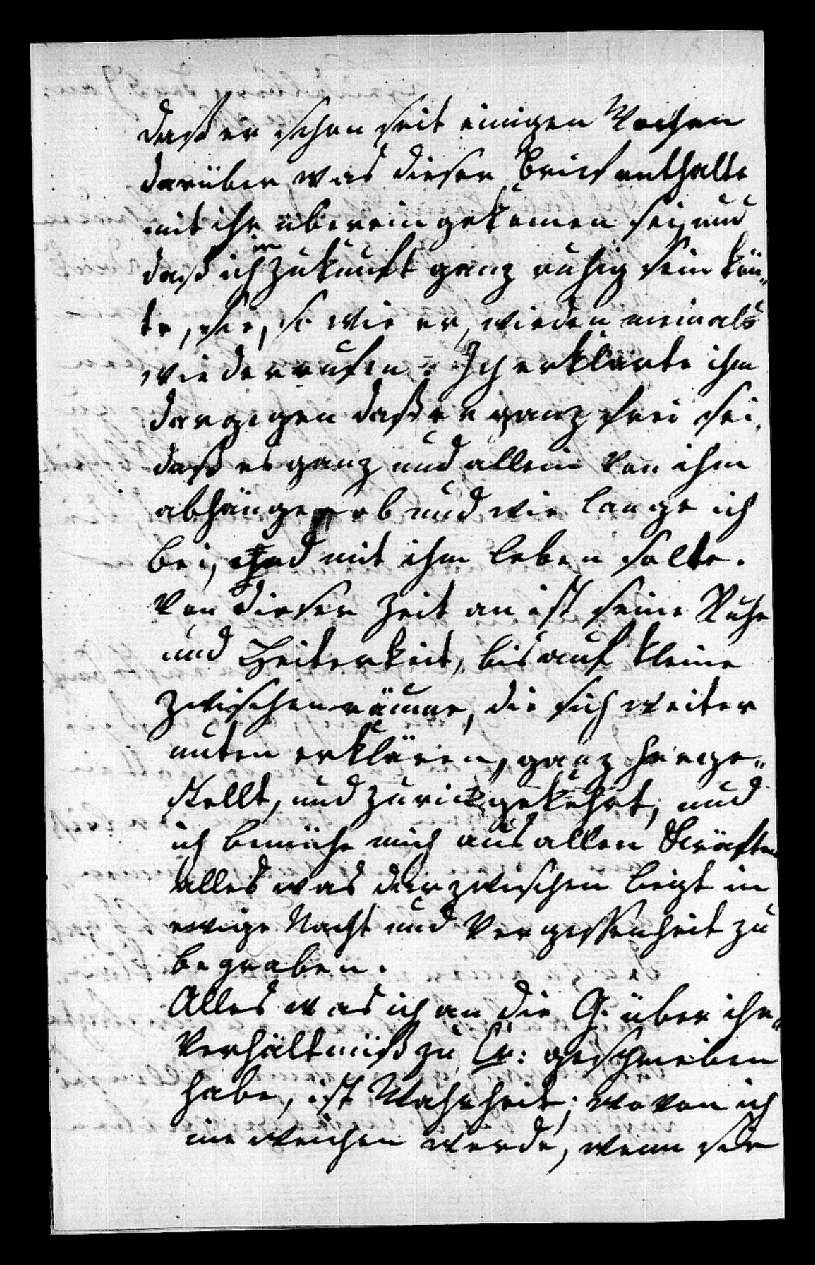 daß er schon seit einigen Wochen
darüber was dieser Brief enthalte
mit ihr übereingekomen sei, und
daß ich in Zukunft ganz ruhig sein kön„
te, sie, so wie er, würden niemals
wiederrufen. Ich erklärte ihm
dargegen daß er ganz frei sei,
daß es ganz und allein von ihm
abhänge ob und wie lange ich
bei, und mit ihm leben solte.
Von dieser Zeit an ist seine Ruhe
und Heiterkeit, bis auf kleine
Zwischenräume, die sich weiter
unten erklären, ganz herge„
stellt, und zurückgekehrt, und
ich bemühe mich aus allen Kräften
alles was darzwischen liegt in
ewige Nacht und Vergessenheit zu
begraben.
Alles was ich an die G. über ihr
Verhältniß zu Er: geschrieben
habe, ist Wahrheit; wovon ich
nie weichen werde, wenn sie